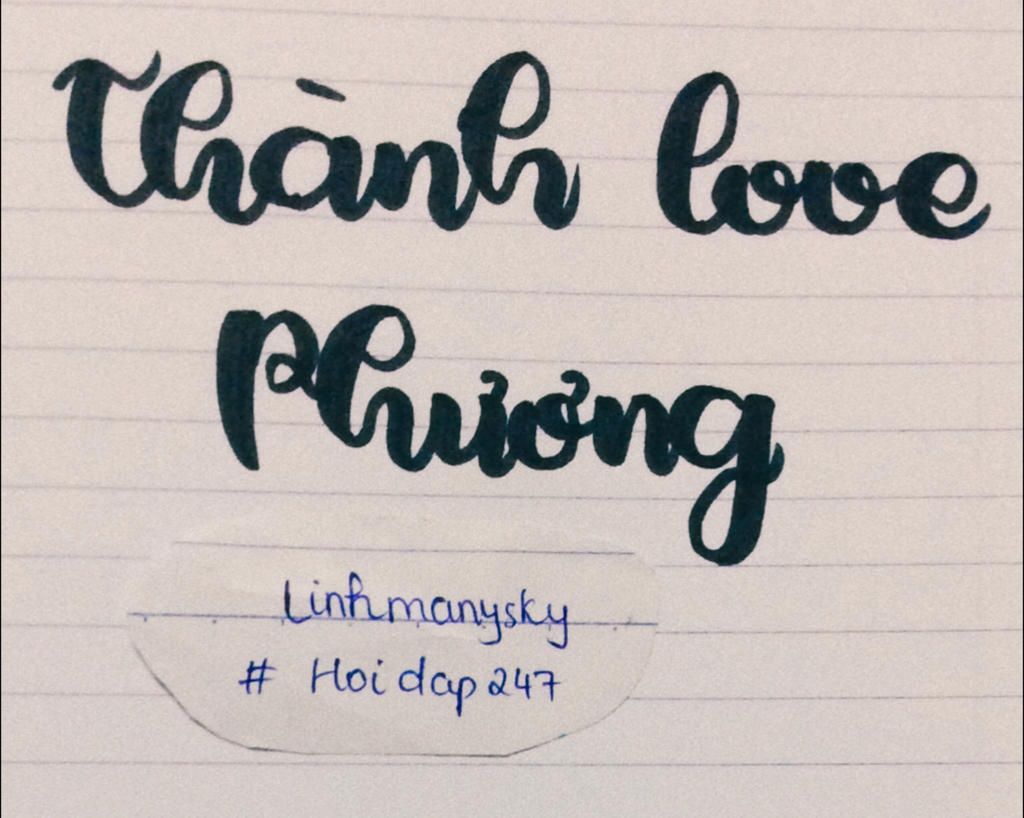 Thành love
Phương
Linhmanysky
# Hoidap247